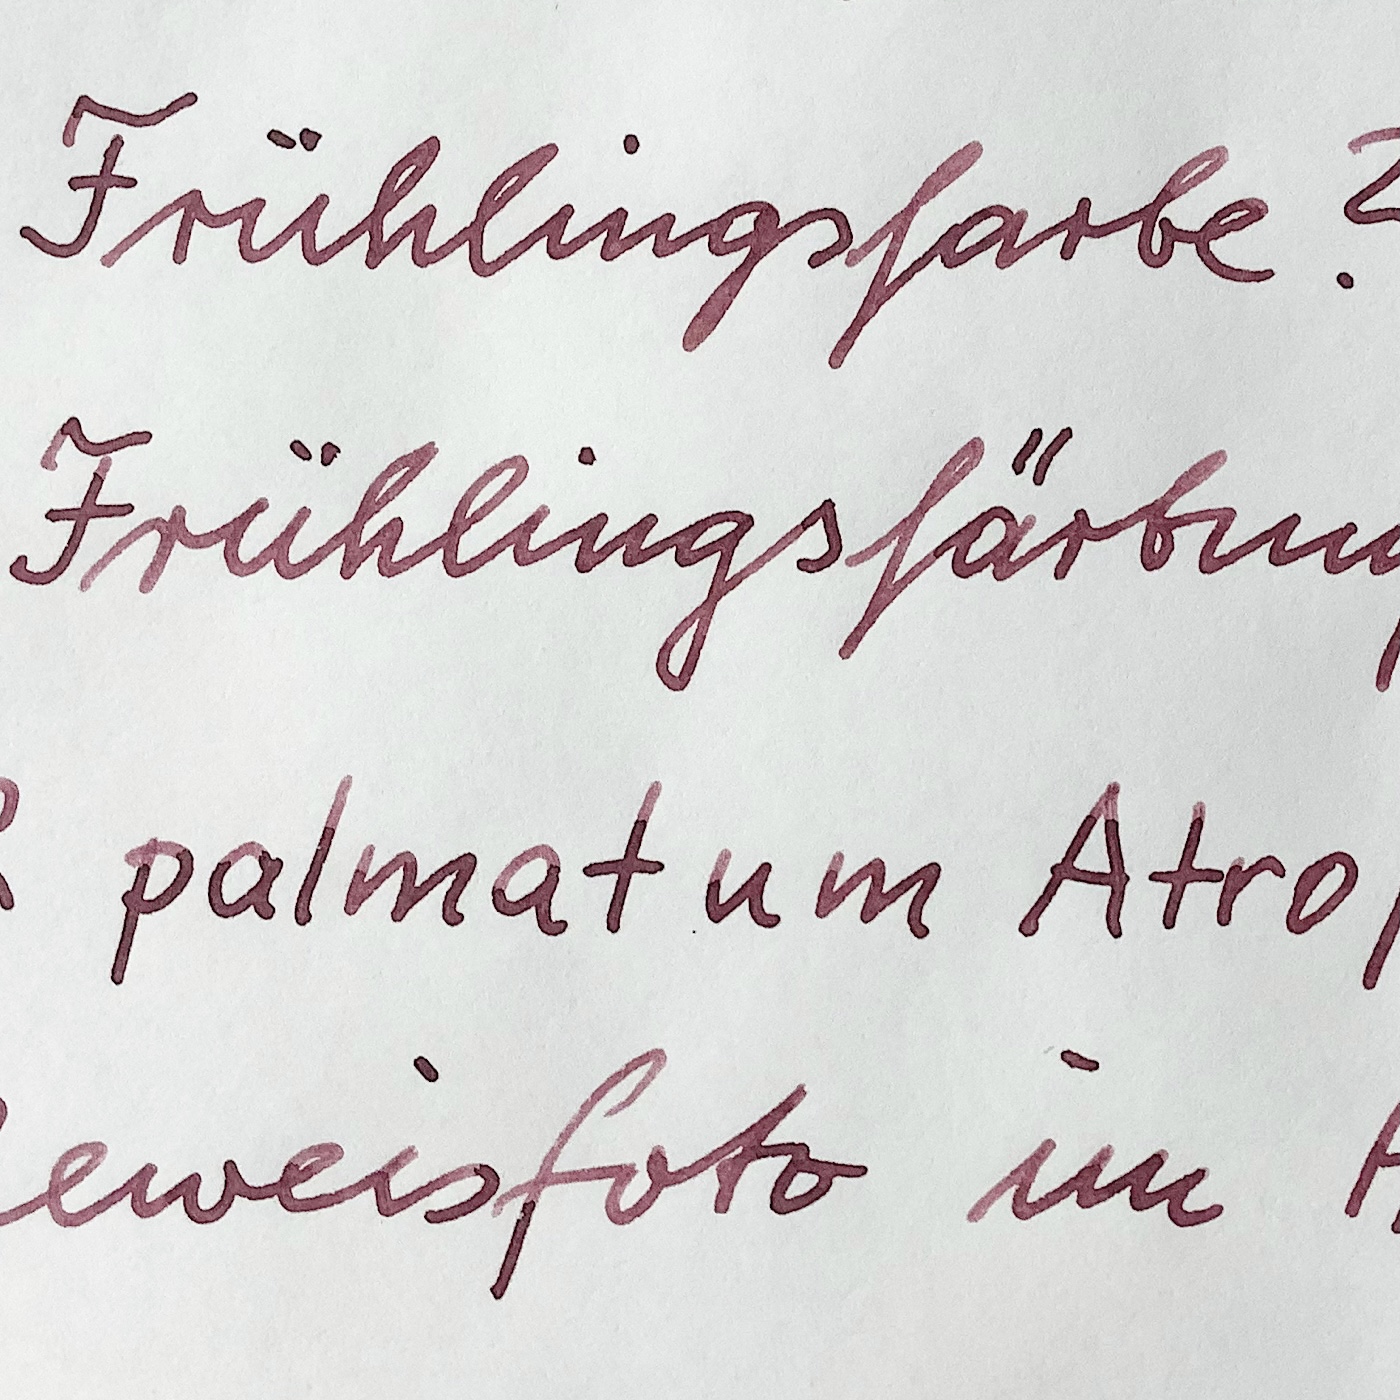 Frühlingsfarbe?
Frühlingsfärbung
palmatum Atrop
Beweisfoto im